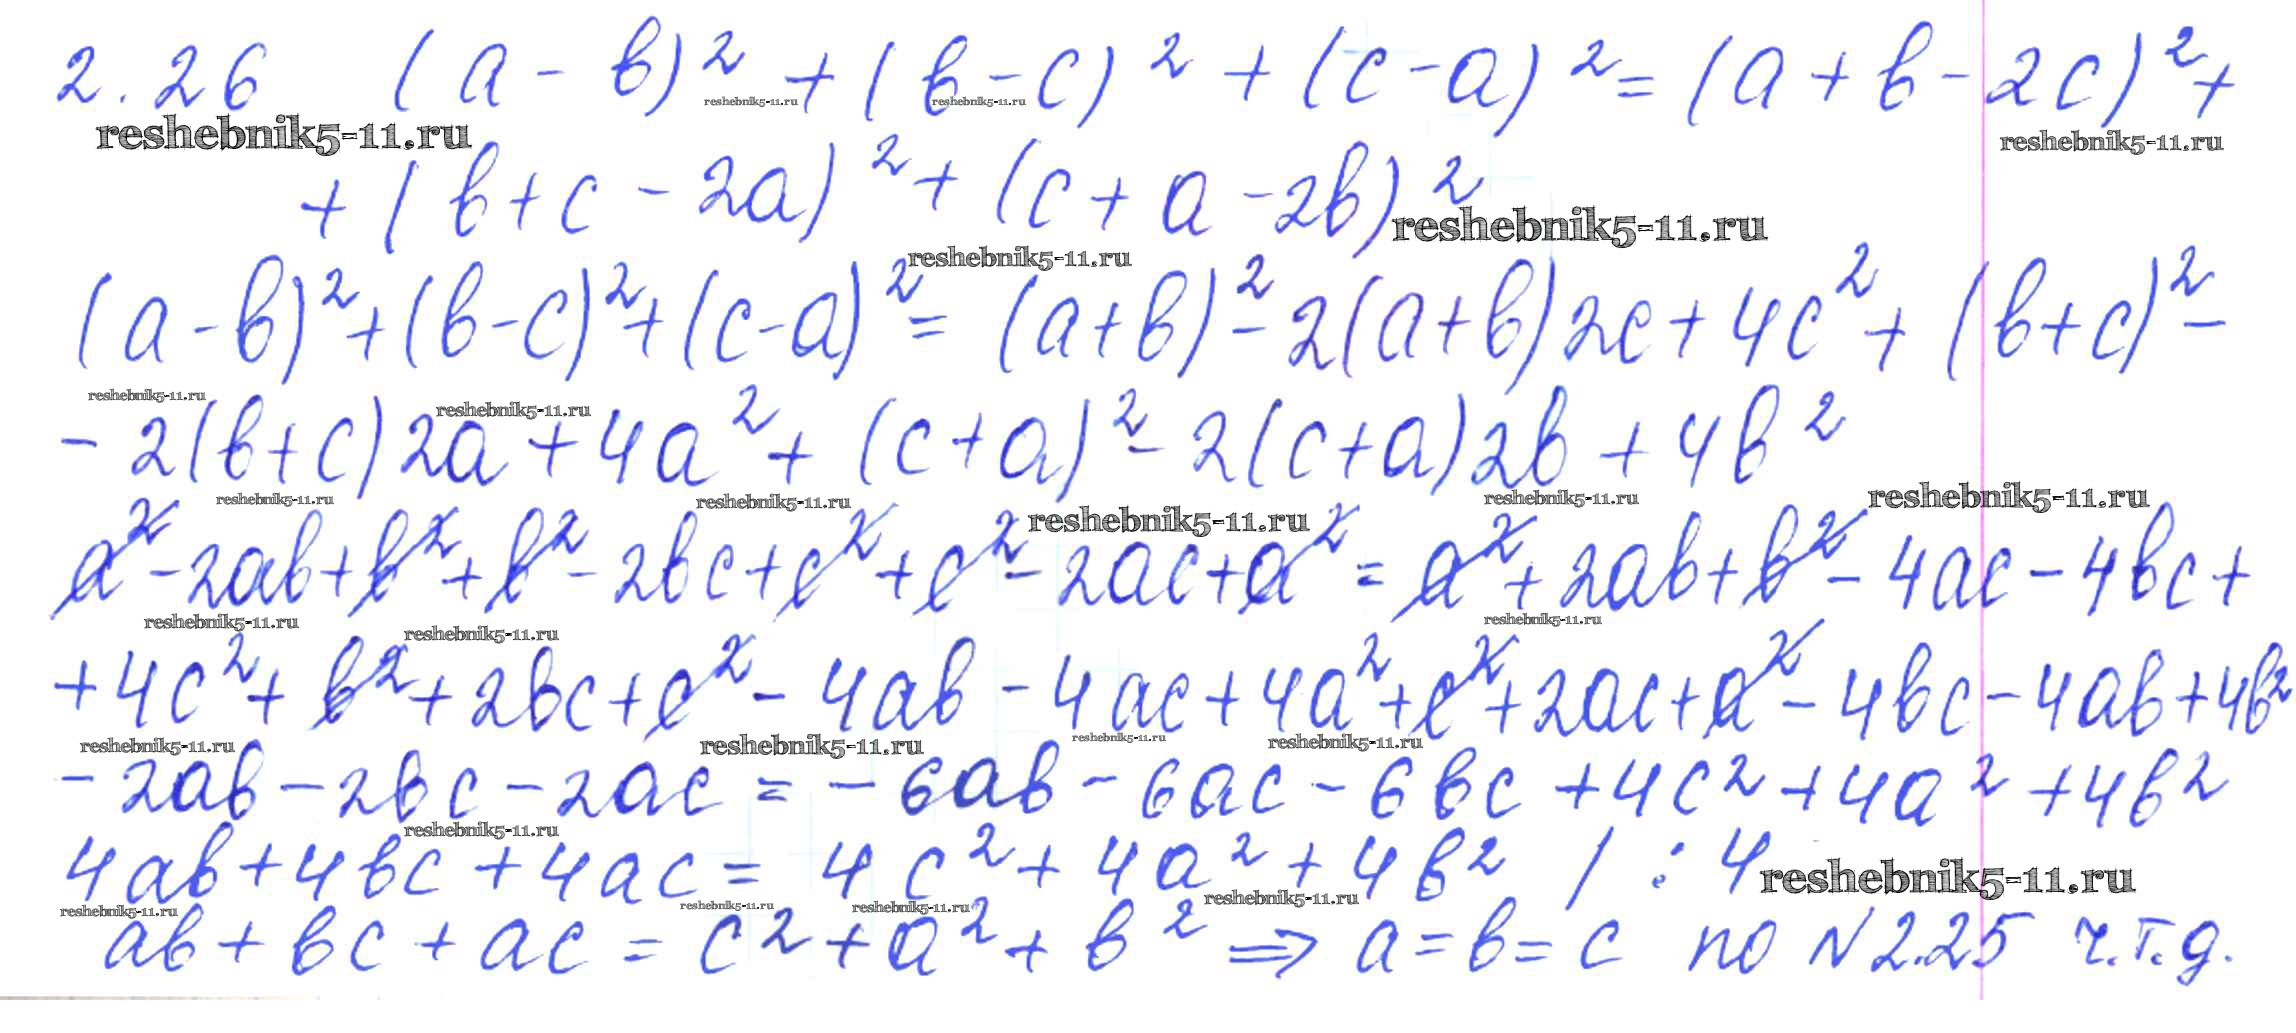 2.26 (a - b)² + (b - c)² + (c - a)² = (a + b - 2c)² +
reshebnik5-11.ru reshebnik5-11.ru reshebnik5-11.ru reshebnik5-11.ru
+ (b + c - 2a)² + (c + a - 2b)²
reshebnik5-11.ru reshebnik5-11.ru
(a - b)² + (b - c)² + (c - a)² = (a + b)² - 2(a + b)2c + 4c² + (b + c)² -
reshebnik5-11.ru reshebnik5-11.ru
- 2(b + c)2a + 4a² + (c + a)² - 2(c + a)2b + 4b²
reshebnik5-11.ru reshebnik5-11.ru reshebnik5-11.ru reshebnik5-11.ru reshebnik5-11.ru
a² - 2ab + b² + b² - 2bc + c² + c² - 2ac + a² = a² + 2ab + b² - 4ac - 4bc +
reshebnik5-11.ru reshebnik5-11.ru reshebnik5-11.ru
+ 4c² + b² + 2bc + c² - 4ab - 4ac + 4a² + c² + 2ac + a² - 4bc - 4ab + 4b²
reshebnik5-11.ru reshebnik5-11.ru reshebnik5-11.ru reshebnik5-11.ru
- 2ab - 2bc - 2ac = - 6ab - 6ac - 6bc + 4c² + 4a² + 4b²
reshebnik5-11.ru
4ab + 4bc + 4ac = 4c² + 4a² + 4b² / : 4
reshebnik5-11.ru
reshebnik5-11.ru reshebnik5-11.ru reshebnik5-11.ru reshebnik5-11.ru
ab + bc + ac = c² + a² + b² => a = b = c по N 2.25 ч.т.д.